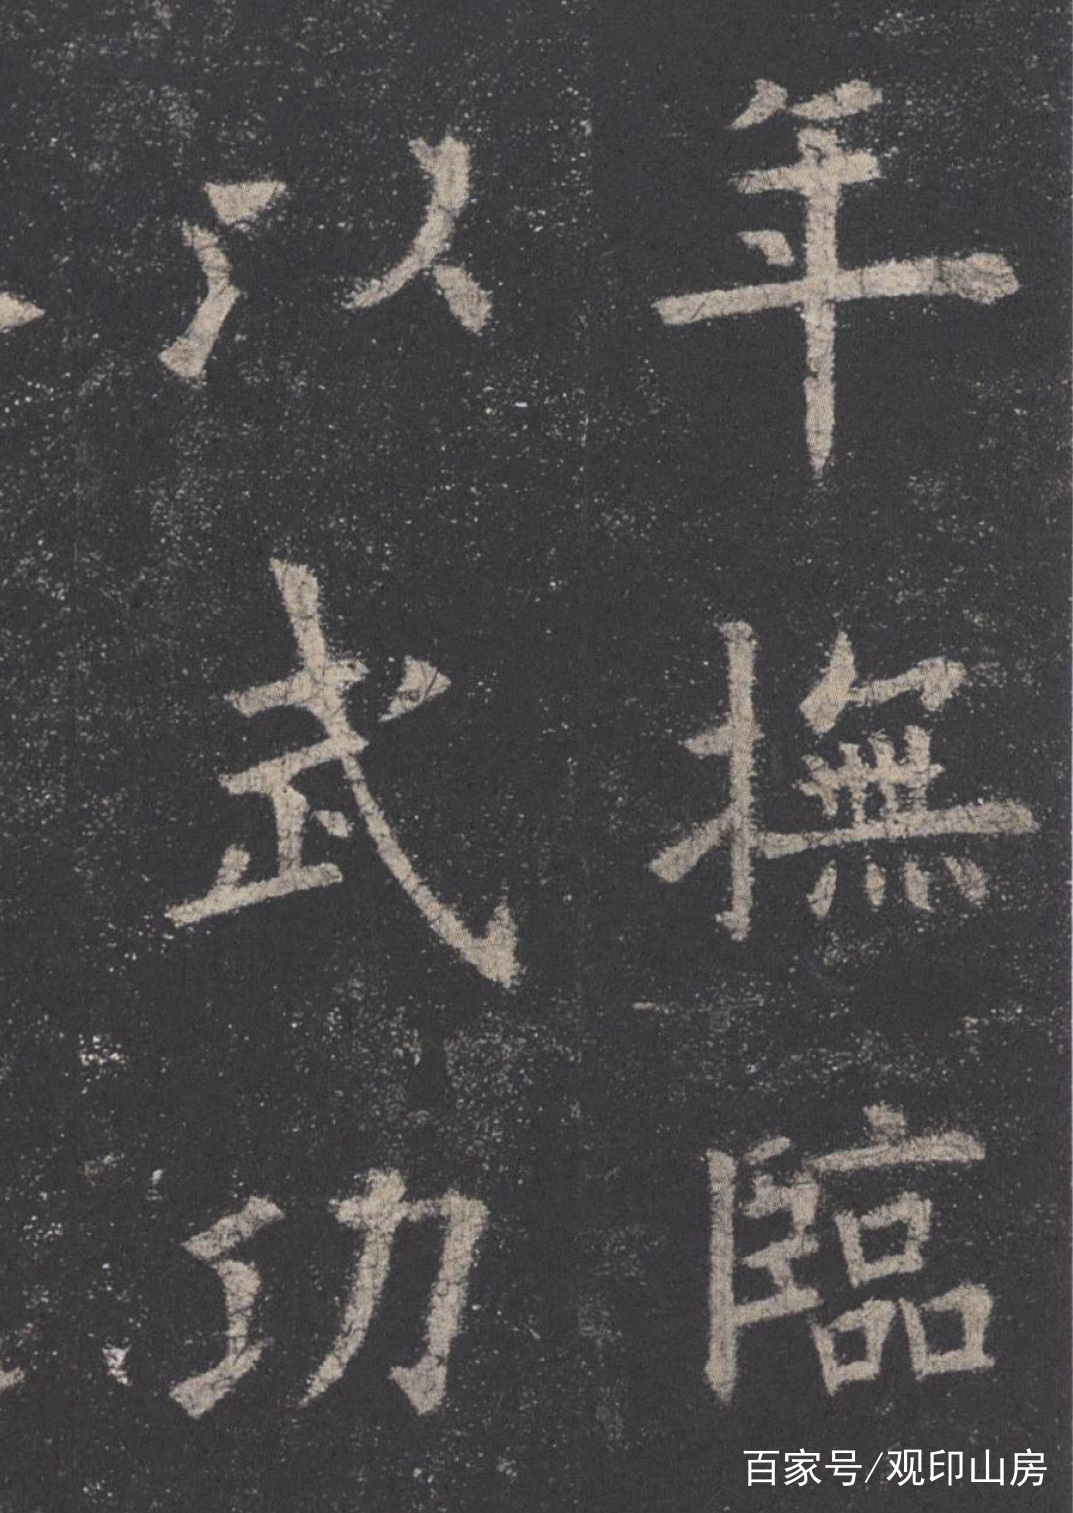 年撫臨
以武功
百家号/观印山房